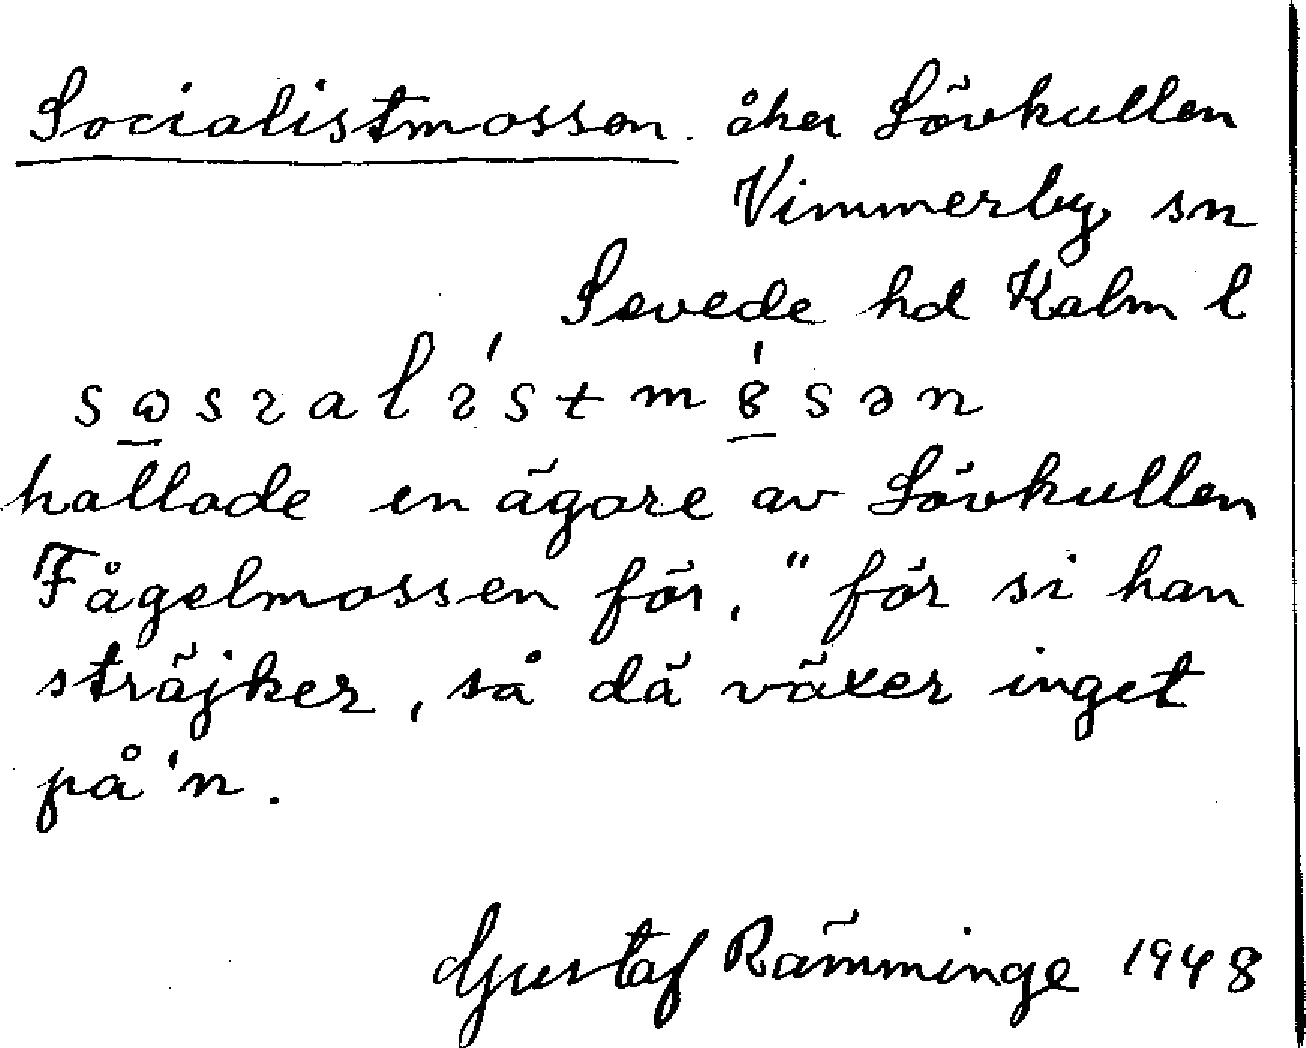 Socialistmossen. åker Lövkullen
Vimmerby sn
Sevede hd Kalm l
kallade en ägare av Lövkullen
Fågelmossen för, "för si han
sträjker, så dä växer inget
på'n.
Gustaf Rämminge 1948